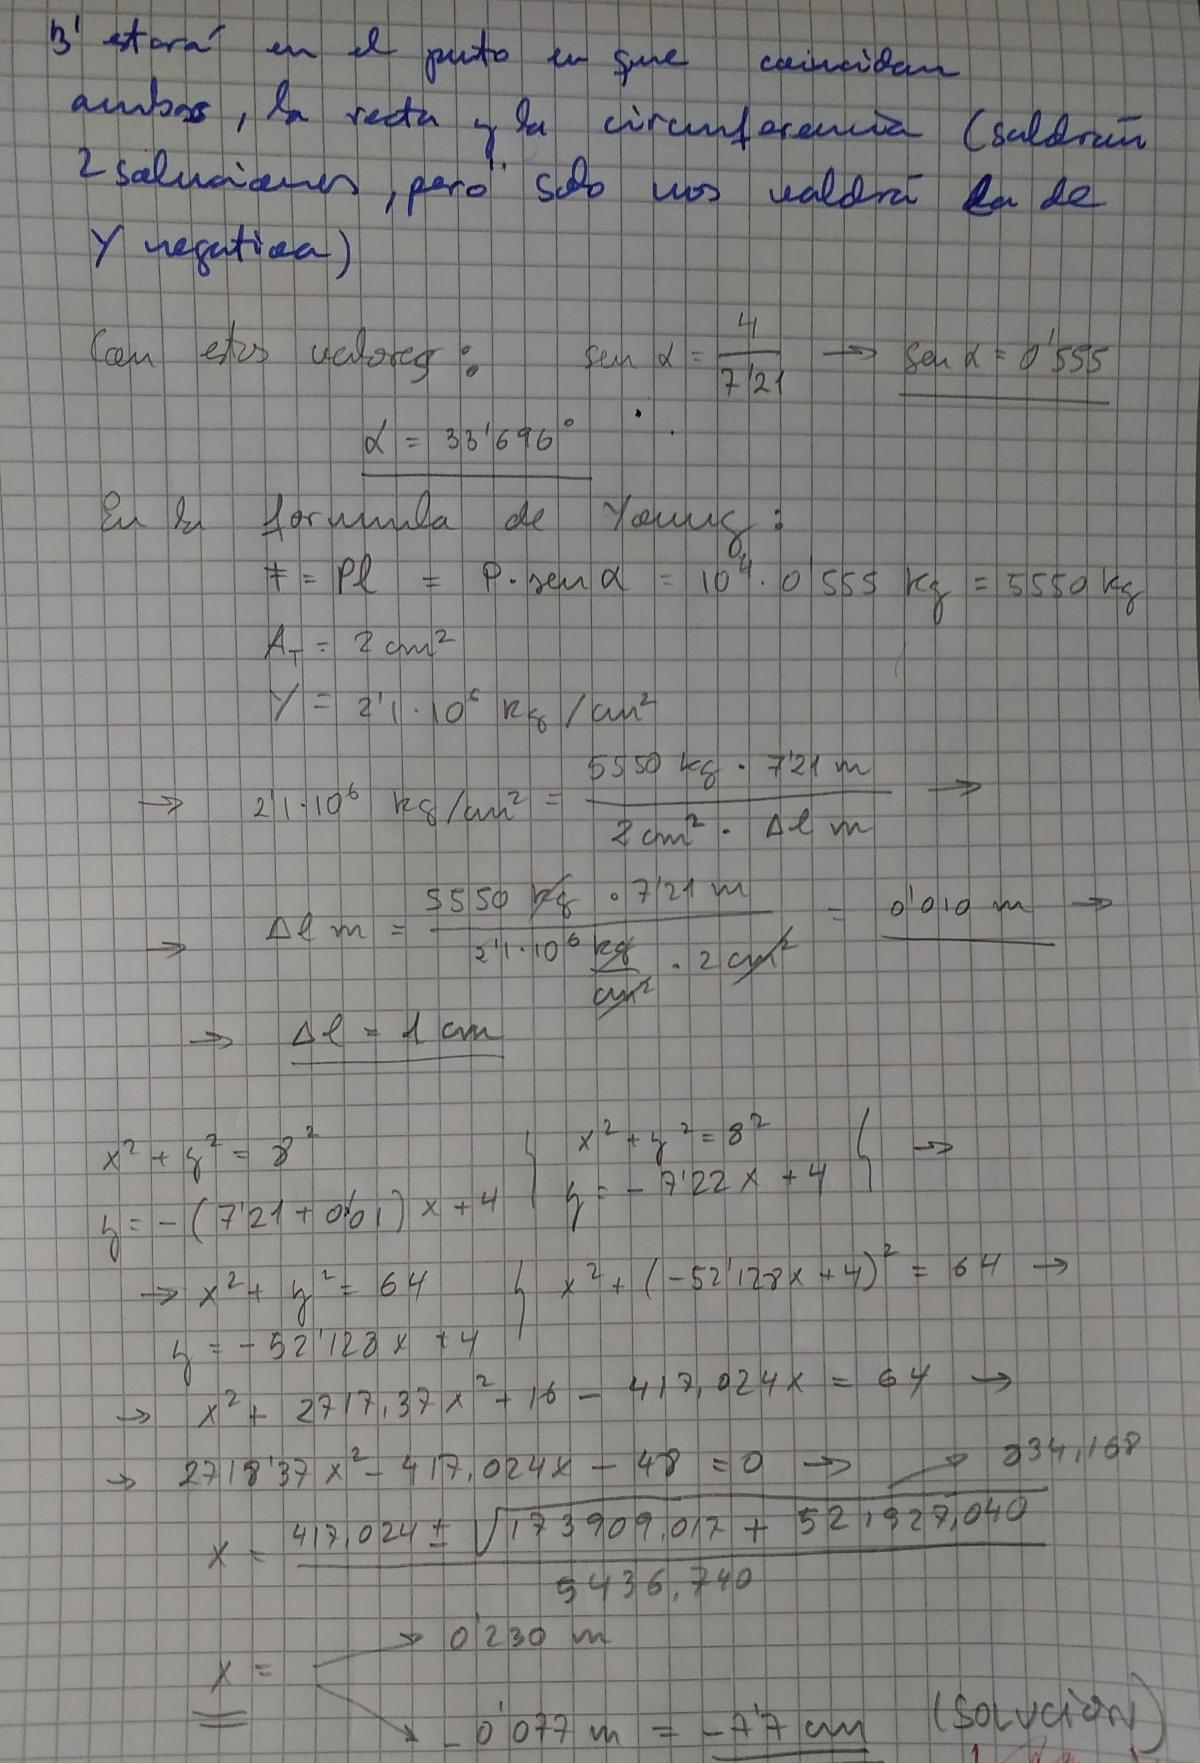 B' estará en el punto en que coincidan
ambos, la recta y la circunferencia (saldrán
2 soluciones, pero solo nos valdrá la de
Y negativa)
Con estos valores: sen α = 4/7'21 → sen α = 0'555
α = 33'696°
En la formula de Young:
F = Pl = P·sen α = 10⁴·0'555 kg = 5550 kg
A_T = 2 cm²
Y = 2'1·10⁶ kg/cm²
→ 2'1·10⁶ kg/cm² = (5550 kg · 7'21 m)/(2 cm² · Δl m) →
→ Δl m = (5550 kg · 7'21 m)/(2'1·10⁶ kg/cm² · 2 cm²) = 0'010 m →
→ Δl = 1 cm
x² + y² = 8² } x² + y² = 8² } →
y = -(7'21 + 0'01) x + 4 } y = - 7'22 x + 4 }
→ x² + y² = 64 } x² + (-52'128x + 4)² = 64 →
y = - 52'128 x + 4 }
→ x² + 2717,37 x² + 16 - 417,024x = 64 →
→ 2718'37 x² - 417,024x - 48 = 0 → 834,168
x = (417,024 ± √(173909,017 + 521927,040))/5436,740
x = → 0'230 m
→ - 0'077 m = - 7'7 cm (SOLUCIÓN)